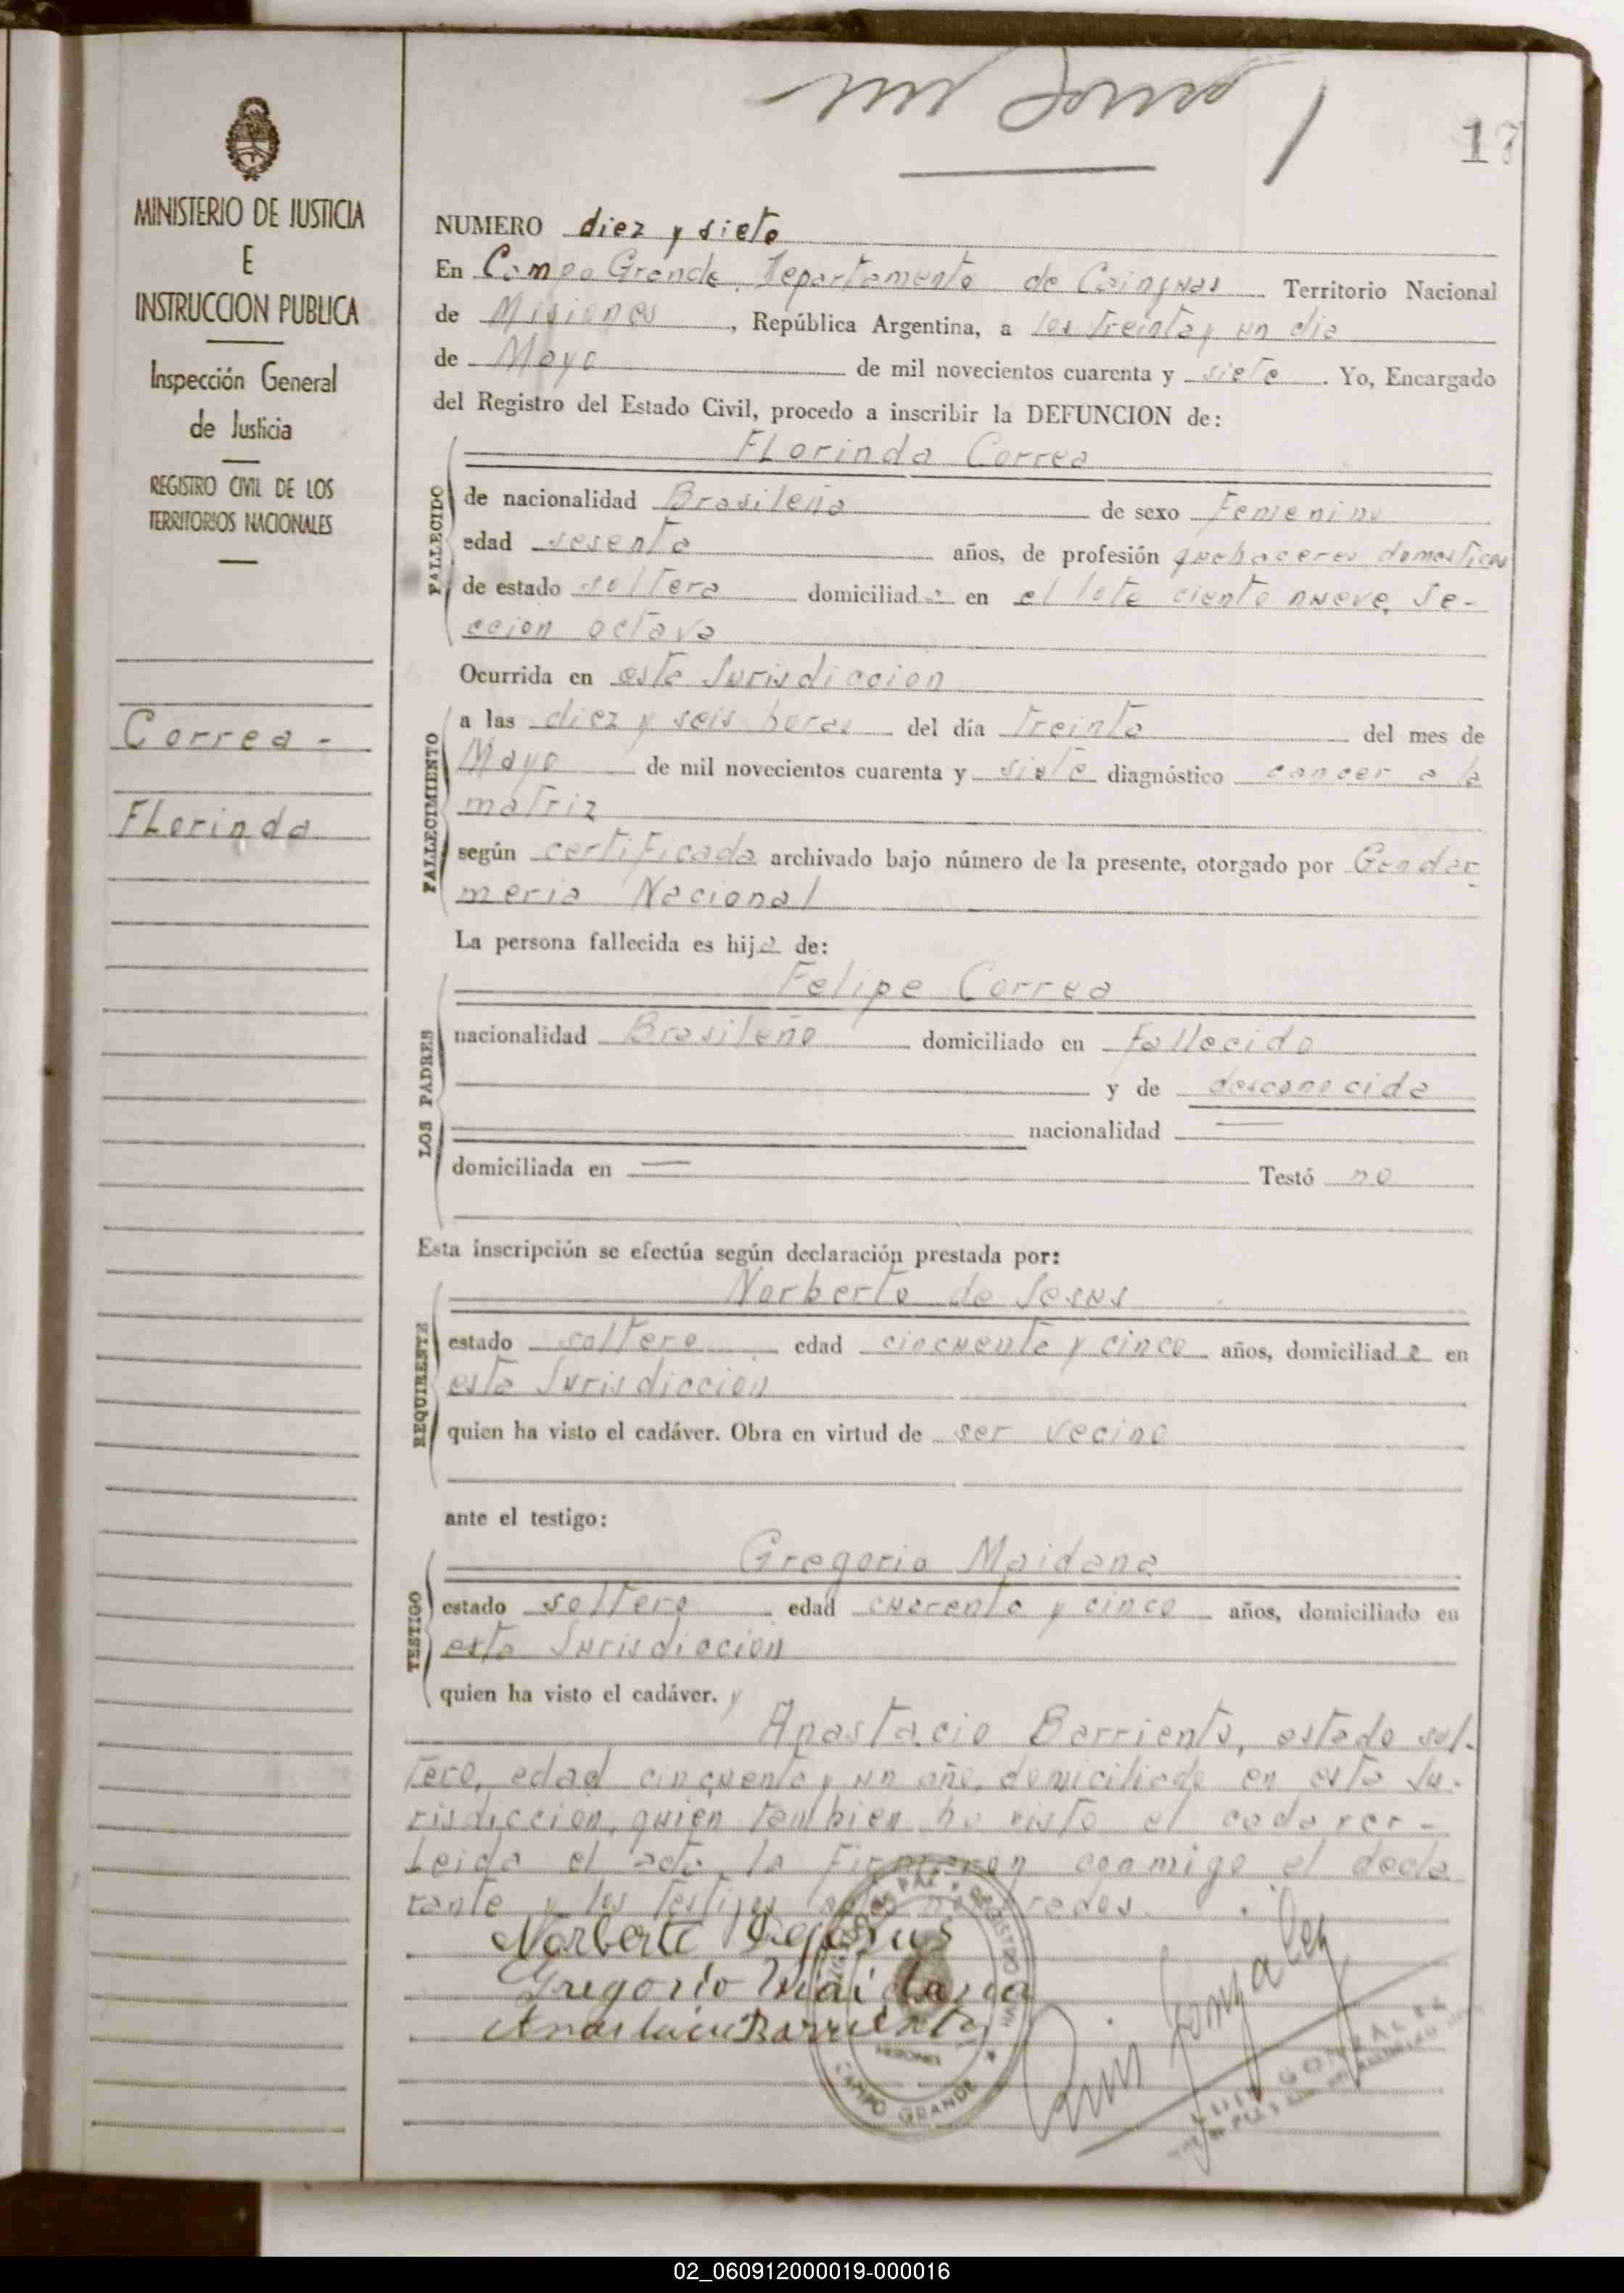 17
MINISTERIO DE JUSTICIA
E
INSTRUCCION PUBLICA
Inspección General
de Justicia
REGISTRO CIVIL DE LOS
TERRITORIOS NACIONALES
Correa -
FLorinda
NUMERO diez y siete
En Campo Grande, Departamento de Cainguas Territorio Nacional
de Misiones, República Argentina, a los treinta y un dia
de Mayo de mil novecientos cuarenta y siete. Yo, Encargado
del Registro del Estado Civil, procedo a inscribir la DEFUNCION de:
FLorinda Correa
FALLECIDO
de nacionalidad Brasileña de sexo Femenino
edad sesenta años, de profesión quehaceres domesticos
de estado soltera domiciliada en el lote ciento nueve, Se-
ccion octava
Ocurrida en esta Jurisdiccion
FALLECIMIENTO
a las diez y seis horas del día treinta del mes de
Mayo de mil novecientos cuarenta y siete diagnóstico cancer a la
matriz
según certificado archivado bajo número de la presente, otorgado por Gendar-
meria Nacional
La persona fallecida es hija de:
Felipe Correa
LOS PADRES
nacionalidad Brasileño domiciliado en Fallecido
y de desconocida
nacionalidad —
domiciliada en — Testó no
Esta inscripción se efectúa según declaración prestada por:
Norberto de Jesus
REQUIRENTE
estado soltero edad cincuenta y cinco años, domiciliado en
esta Jurisdiccion
quien ha visto el cadáver. Obra en virtud de ser vecino
ante el testigo:
Gregorio Maidana
TESTIGO
estado soltero edad cuarenta y cinco años, domiciliado en
esta Jurisdiccion
quien ha visto el cadáver. y
Anastacio Barriento, estado sol-
tero, edad cincuenta y un año, domiciliado en esta Ju-
risdiccion, quien tambien ha visto el cadaver -
Leida el acta, la Firmaron conmigo el decla
rante y los testigos nombrados.
Norberto Dejesus
Gregorio Maidana
Anastacio Barriento
Luis Gonzalez
LUIS GONZALEZ
CAMPO GRANDE
MISIONES
02_060912000019-000016